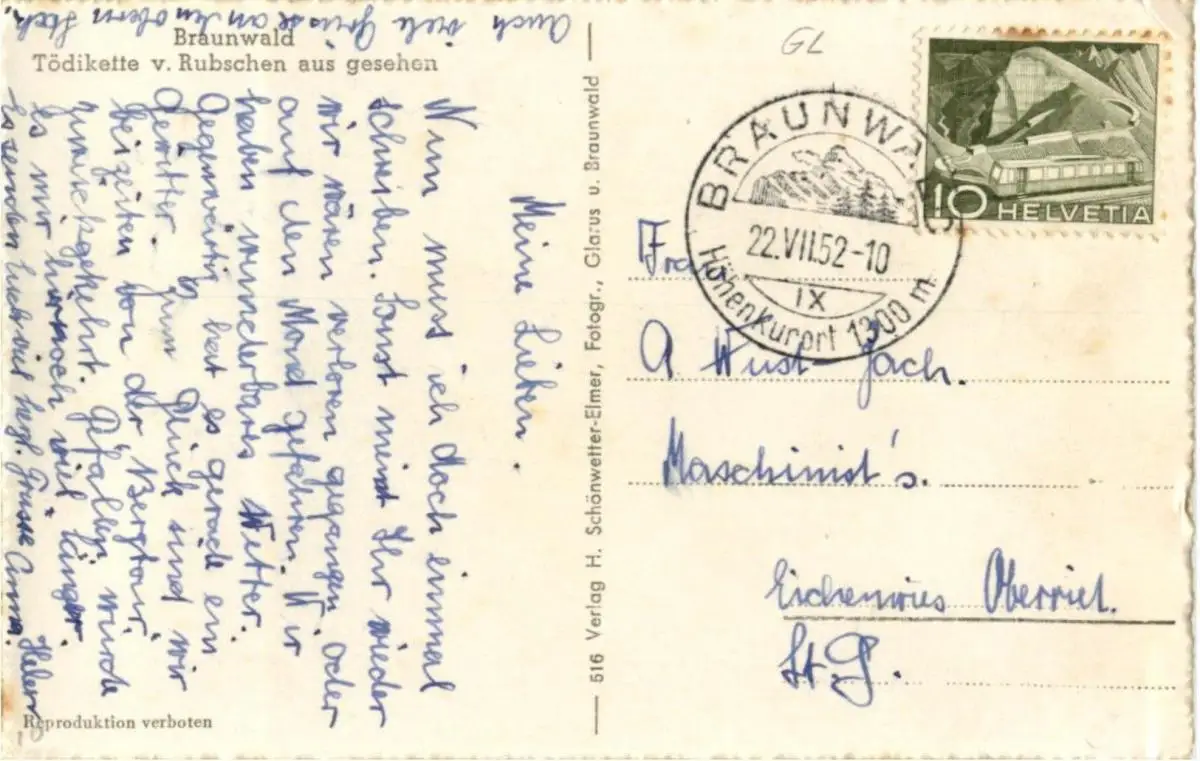 Auch viele Grüsse an den obern Stock.
Braunwald
Tödikette v. Rubschen aus gesehen
Meine Lieben.
Nun muss ich doch einmal
schreiben. Sonst meint Ihr wieder
wir wären verloren gegangen oder
auf den Mond gefahren. Wir
haben wunderbares Wetter.
Gegenwärtig hat es gerade ein
Gewitter. Zum Glück sind wir
beizeiten von der Bergtour
zurückgekehrt. Gefallen würde
es mir hier noch viel länger.
Es senden Euch viel herzl. Grüsse Emma.
Reproduktion verboten
516 Verlag H. Schönwetter-Elmer, Fotogr., Glarus u. Braunwald
GL
BRAUNWALD
22.VII.52-10
IX
Höhenkurort 1300 m.
10 HELVETIA
A Wüst-Zäch.
Maschinist's.
Eichenwies Oberriet.
St. G.